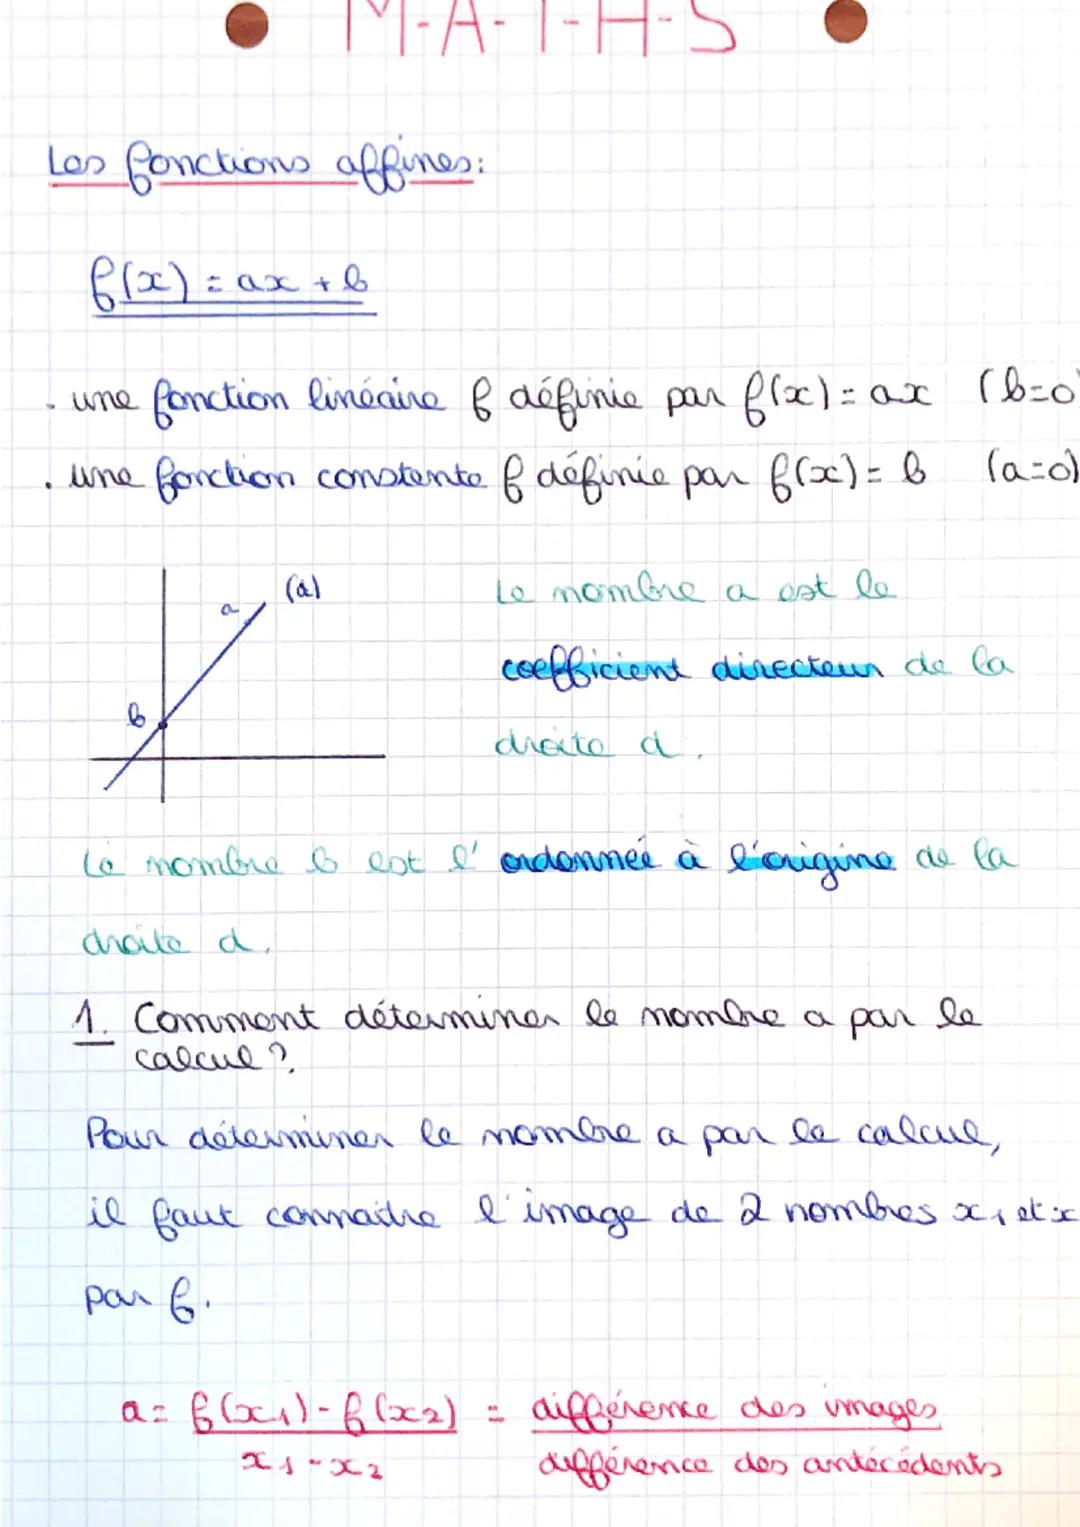 M-A-T-H-S
Les fonctions affines:
f(x) = ax + b
. une fonction linéaire f définie par f(x) = ax (b=0)
. une fonction constante f définie par f(x) = b (a=0)
a (d)
b
Le nombre a est le
coefficient directeur de la
droite d.
Le nombre b est l'ordonnée à l'origine de la
droite d.
1. Comment déterminer le nombre a par le
calcul ?
Pour déterminer le nombre a par le calcul,
il faut connaitre l'image de 2 nombres x₁ et x
par f.
a = f(x₁) - f(x₂) = différence des images
x₁ - x₂ différence des antécédents